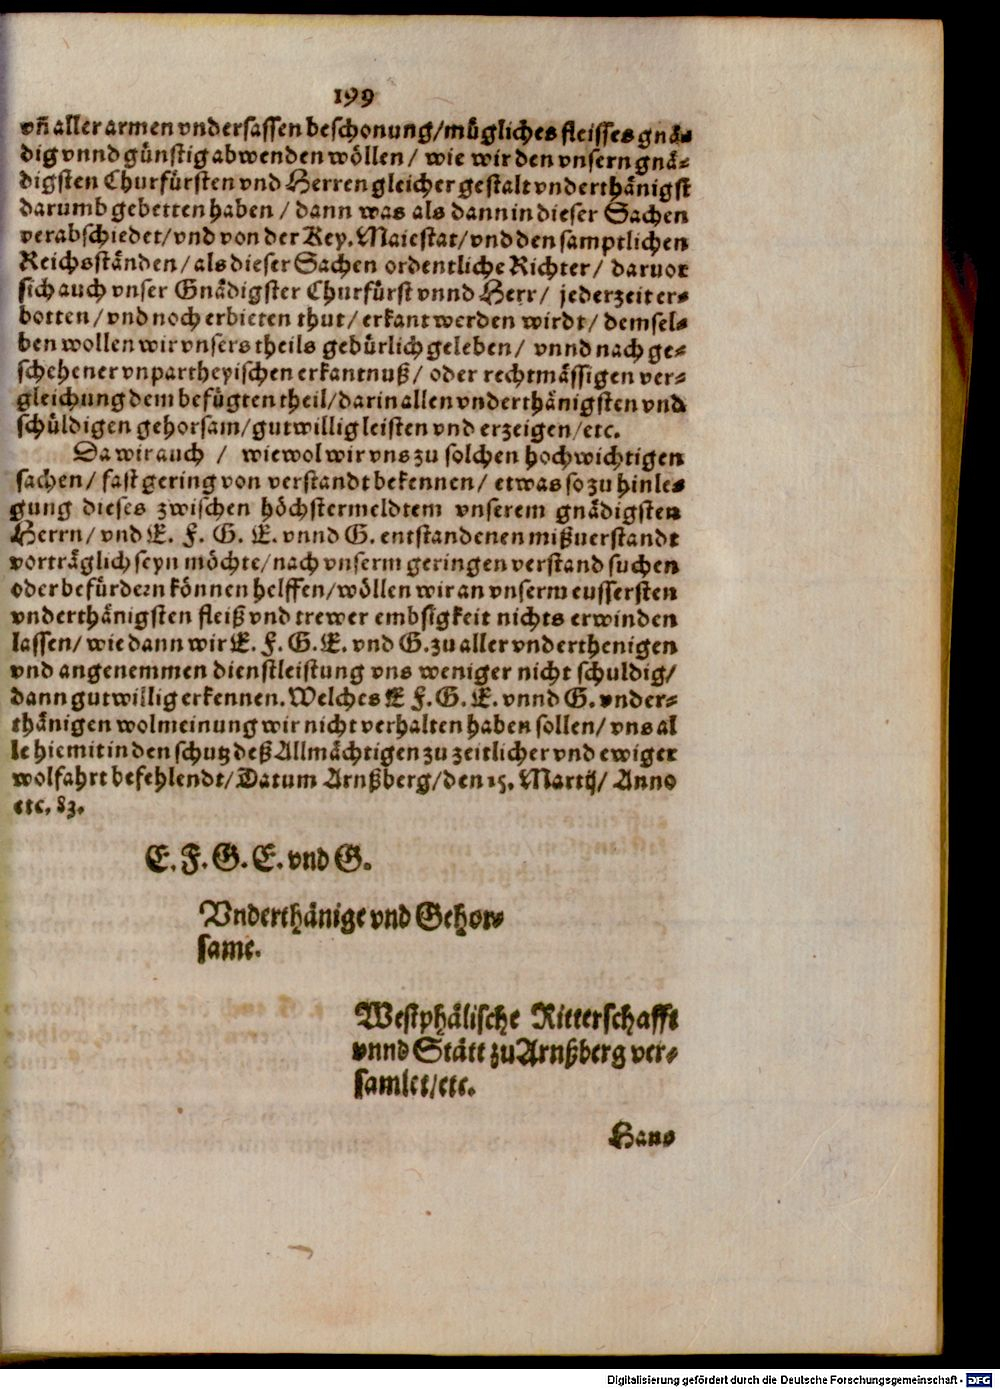 199
vñ aller armen vndersassen beschonung/mügliches fleisses gnä⸗
dig vnnd günstig abwenden wöllen/ wie wir den vnsern gnä⸗
digsten Churfürsten vnd Herren gleicher gestalt vnderthänigst
darumb gebetten haben / dann was als dann in dieser Sachen
verabschiedet/vnd von der Key. Maiestat/vnd den samptlichen
Reichsständen/als dieser Sachen ordentliche Richter/ daruor
sich auch vnser Gnädigster Churfürst vnnd Herr/ jederzeit er⸗
botten/vnd noch erbieten thut/ erkant werden wirdt/ demsel⸗
ben wollen wir vnsers theils gebürlich geleben/ vnnd nach ge⸗
schehener vnpartheyischen erkantnuß/ oder rechtmässigen ver⸗
gleichung dem befügten theil/darin allen vnderthänigsten vnd
schüldigen gehorsam/gutwillig leisten vnd erzeigen/etc.
Da wir auch / wiewol wir vns zu solchen hochwichtigen
sachen/ fast gering von verstandt bekennen/ etwas so zu hinle⸗
gung dieses zwischen höchstermeldtem vnserem gnädigsten
Herrn/ vnd E. F. G. E. vnnd G. entstandenen mißuerstandt
vorträglich seyn möchte/nach vnserm geringen verstand suchen
oder befürdern können helffen/wöllen wir an vnserm eussersten
vnderthänigsten fleiß vnd trewer embsigkeit nichts erwinden
lassen/ wie dann wir E. F. G. E. vnd G. zu aller vnderthenigen
vnd angenemmen dienstleistung vns weniger nicht schuldig/
dann gutwillig erkennen. Welches E F. G. E. vnnd G. vnder⸗
thänigen wolmeinung wir nicht verhalten haben sollen/ vns al
le hiemit in den schutz deß Allmächtigen zu zeitlicher vnd ewiger
wolfahrt befehlendt/ Datum Arnßberg/den 15. Martij/ Anno
etc. 83.
E. F. G. E. vnd G.
Vnderthänige vnd Gehor⸗
same.
Westphälische Ritterschafft
vnnd Stätt zu Arnßberg ver⸗
samlet/etc.
Hans
Digitalisierung gefördert durch die Deutsche Forschungsgemeinschaft - DFG